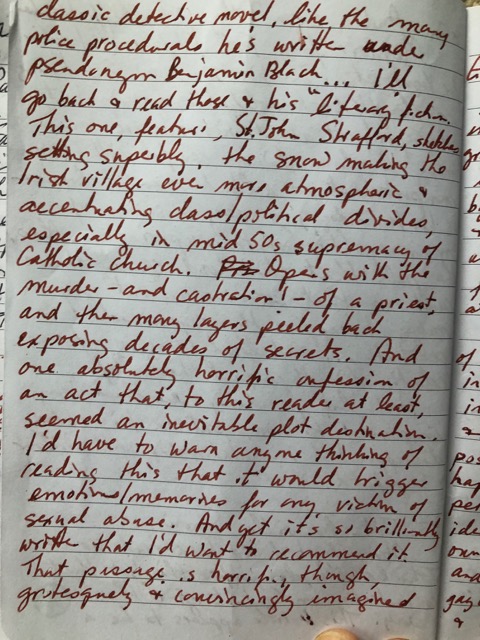 classic detective novel, like the many
police procedurals he's written under
pseudonym Benjamin Black... I'll
go back & read those & his "literary" fiction.
This one, features, St. John Strafford, sketches
setting superbly, the snow making the
Irish village even more atmospheric &
accentuating class/political divides,
especially in mid 50s supremacy of
Catholic Church. Opens with the
murder - and castration! - of a priest,
and then many layers peeled back
exposing decades of secrets. And
one absolutely horrific confession of
an act that, to this reader at least,
seemed an inevitable plot destination.
I'd have to warn anyone thinking of
reading this that it would trigger
emotions/memories for any victim of
sexual abuse. And yet it's so brilliantly
written that I'd want to recommend it.
That passage is horrific, though,
grotesquely & convincingly imagined